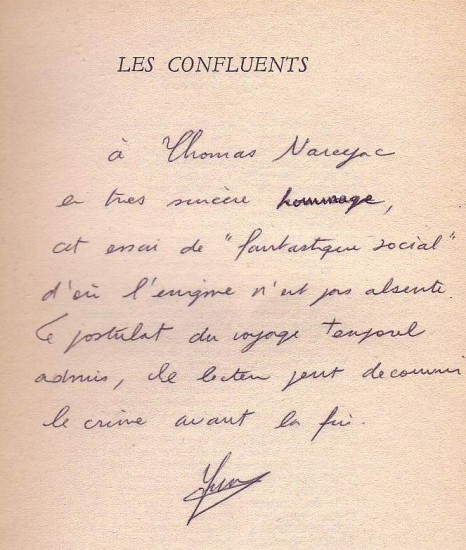 LES CONFLUENTS
à Thomas Narcejac
en très sincère hommage,
cet essai de "fantastique social"
d'où l'énigme n'est pas absente.
Le postulat du voyage temporel
admis, le lecteur peut découvrir
le crime avant la fin.